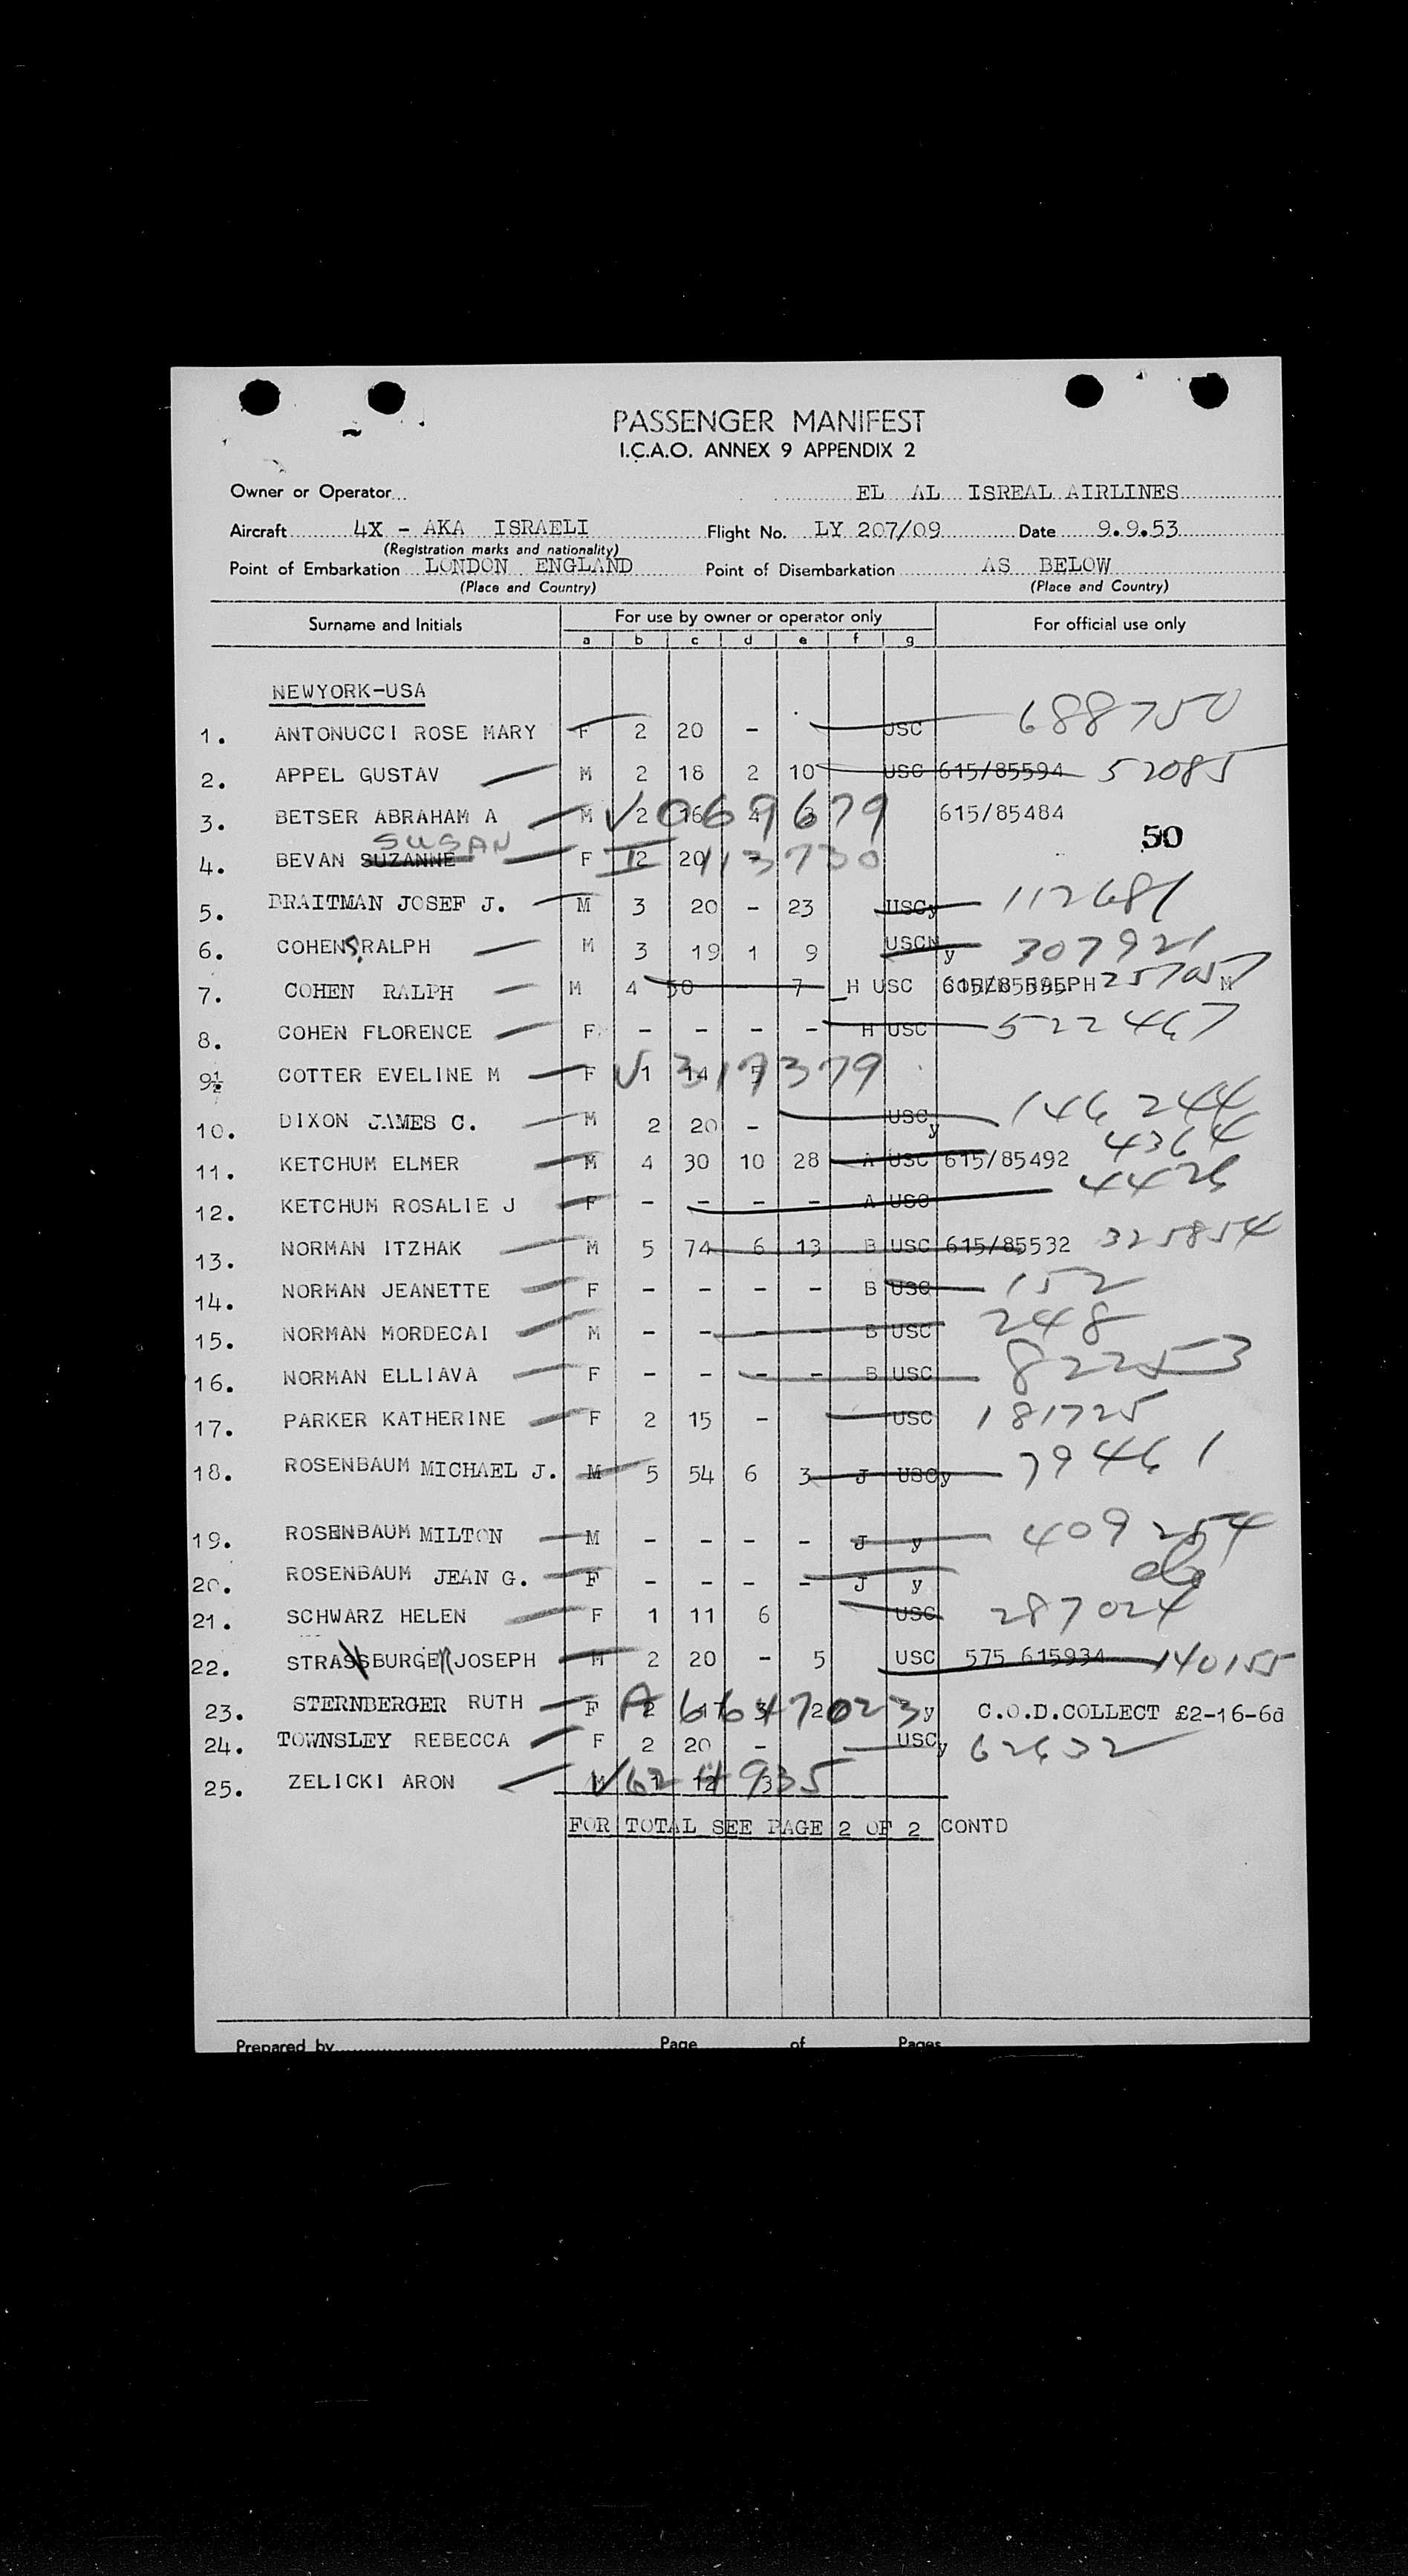 PASSENGER MANIFEST
I.C.A.O. ANNEX 9 APPENDIX 2
Owner or Operator EL AL ISREAL AIRLINES
Aircraft 4X - AKA ISRAELI Flight No. LY 207/09 Date 9.9.53
(Registration marks and nationality)
Point of Embarkation LONDON ENGLAND Point of Disembarkation AS BELOW
(Place and Country) (Place and Country)
Surname and Initials For use by owner or operator only For official use only
a b c d e f g
NEWYORK-USA
1. ANTONUCCI ROSE MARY F 2 20 - USC 688750
2. APPEL GUSTAV M 2 18 2 10 USC 615/85594 52085
3. BETSER ABRAHAM A M 2 16 4 3 V 069679 615/85484
50
SUSAN
4. BEVAN SUZANNE F 2 20 - I 113730
5. BRAITMAN JOSEF J. M 3 20 - 23 USCy 112681
6. COHEN S, RALPH M 3 19 1 9 USCN y 307921
7. COHEN RALPH M 4 50 - 7 H USC 257057 M
8. COHEN FLORENCE F - - - - H USC 522467
9½ COTTER EVELINE M F 1 14 V 317379
10. DIXON JAMES C. M 2 20 - USCy 146244
11. KETCHUM ELMER M 4 30 10 28 A USC 615/85492 4364
12. KETCHUM ROSALIE J F - - - - A USC 4426
13. NORMAN ITZHAK M 5 74 6 13 B USC 615/85532 325854
14. NORMAN JEANETTE F - - - - B USC 152
15. NORMAN MORDECAI M - - - - B USC 248
16. NORMAN ELLIAVA F - - - - B USC 82253
17. PARKER KATHERINE F 2 15 - USC 181725
18. ROSENBAUM MICHAEL J. M 5 54 6 3 J USCy 79461
19. ROSENBAUM MILTON M - - - - J y 409254
20. ROSENBAUM JEAN G. F - - - - J y do
21. SCHWARZ HELEN F 1 11 6 USC 287024
22. STRASSBURGER JOSEPH M 2 20 - 5 USC 575 615934 140155
23. STERNBERGER RUTH F 2 17 3 2 A6647023 y C.O.D.COLLECT £2-16-6d
24. TOWNSLEY REBECCA F 2 20 - USCy 62632
25. ZELICKI ARON M 1 12 3 V624935
FOR TOTAL SEE PAGE 2 OF 2 CONTD
Prepared by Page of Pages